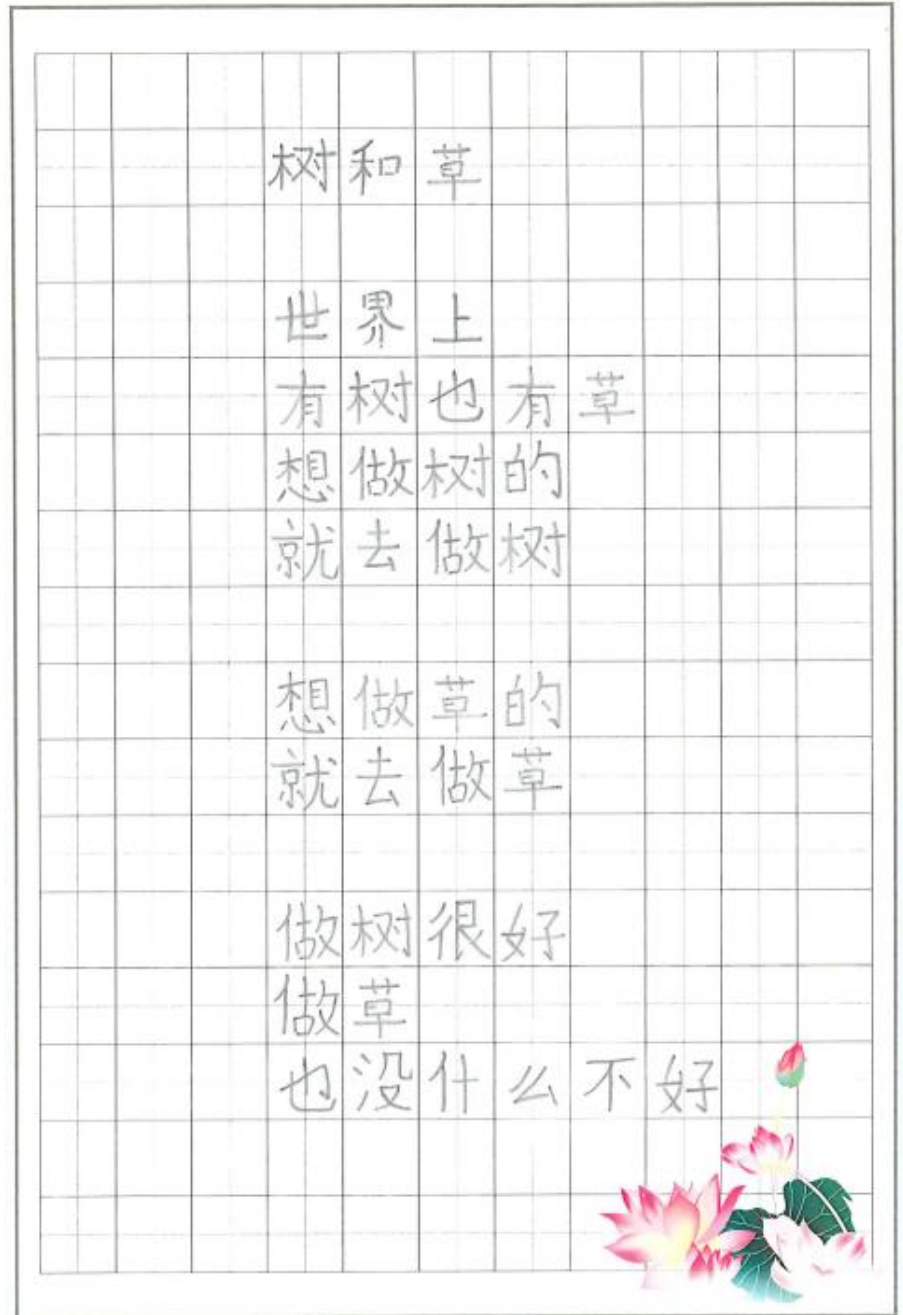 树和草
世界上
有树也有草
想做树的
就去做树
想做草的
就去做草
做树很好
做草
也没什么不好